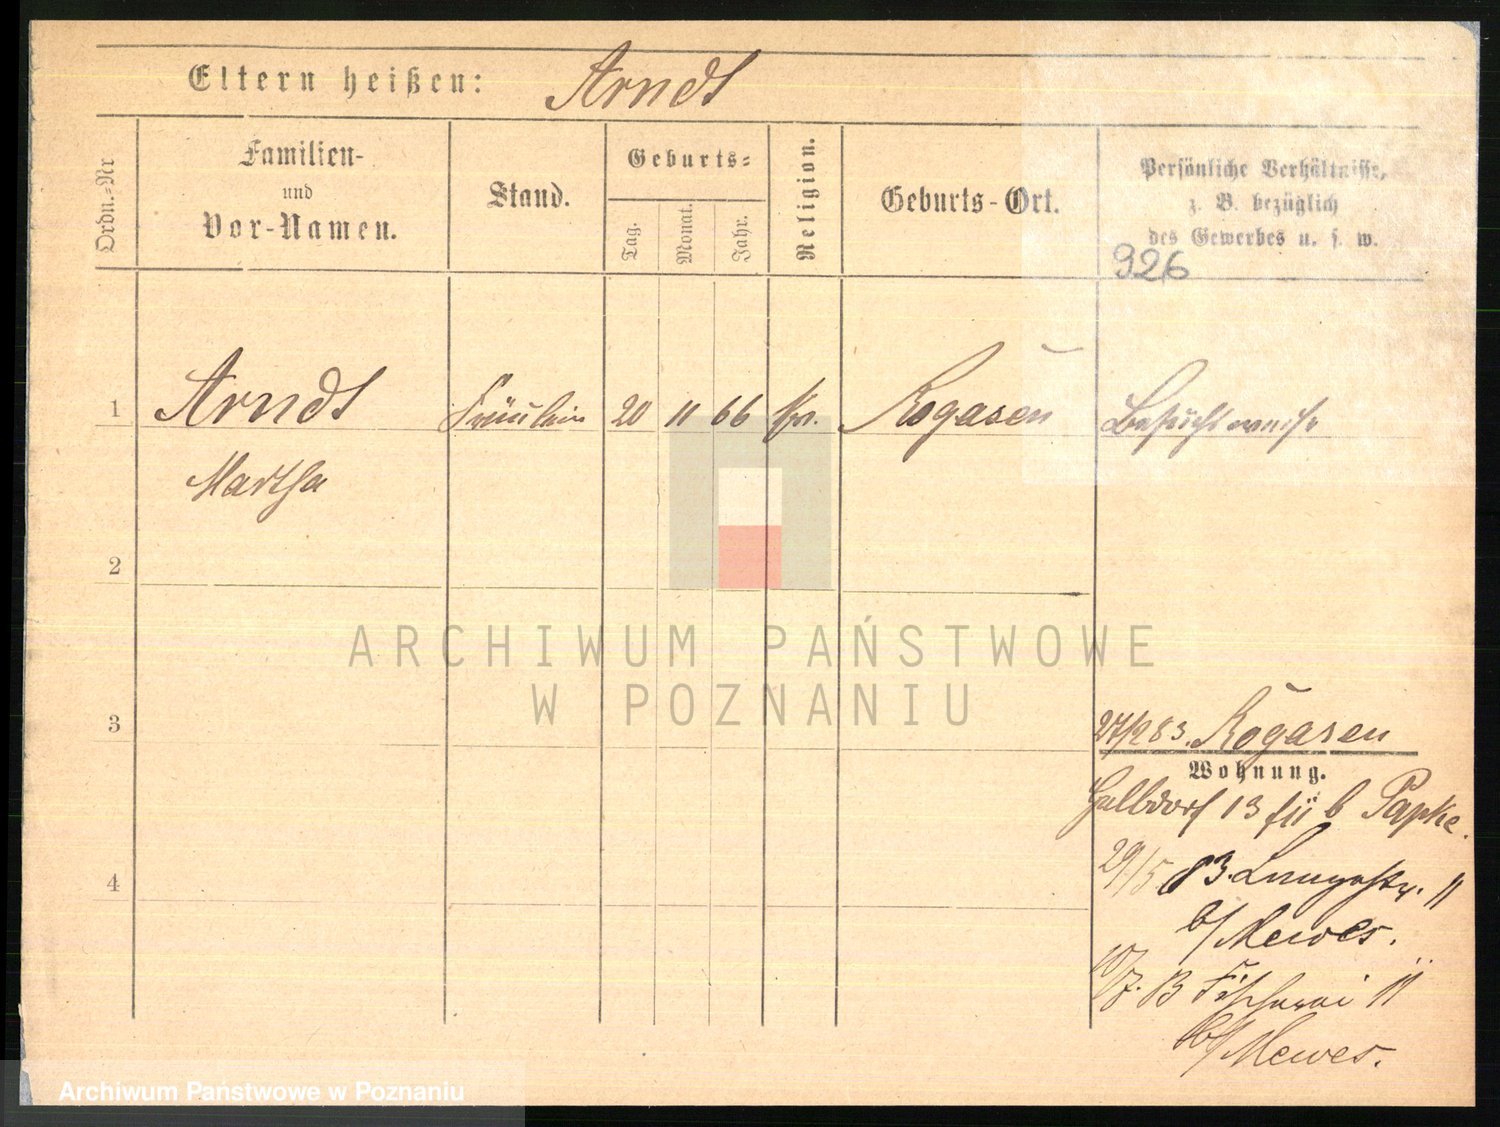 Eltern heißen: Arndt
Ordn.-Nr
Familien-
und
Vor-Namen.
Stand.
Geburts-
Tag.
Monat.
Jahr.
Religion.
Geburts-Ort.
Persönliche Verhältnisse,
z. B. bezüglich
des Gewerbes u. s. w.
926
1 Arndt Fräulein 20 11 66 Rogasen Besuchsweise
Martha
2
3
27/2 83. Rogasen
Wohnung.
Halbdorf 13 b Papke.
4
29/5 83. Langestr. 11
b/ Mewes.
10/7. 83 Fischerei 11
b/ Mewes.
ARCHIWUM PAŃSTWOWE
W POZNANIU
Archiwum Państwowe w Poznaniu